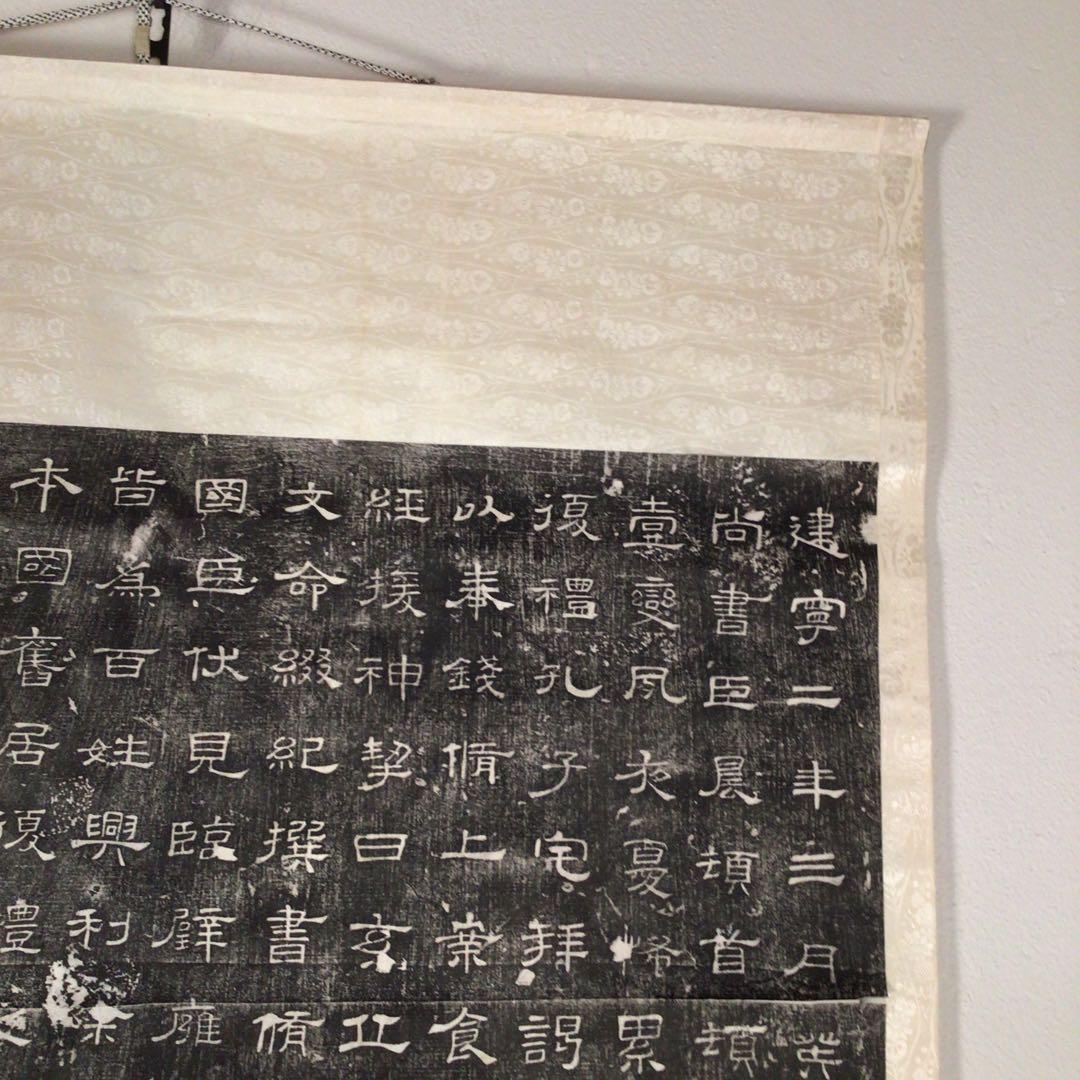 建寧二年三月癸
尚書臣晨頓首頓
壹變夙夜憂怖累
復禮孔子宅拜謁
以奉錢脩上案食
經援神挈曰玄丘
文命綴紀撰書脩
國臣伏見臨璧雍
皆為百姓興利除
本國舊居復禮之